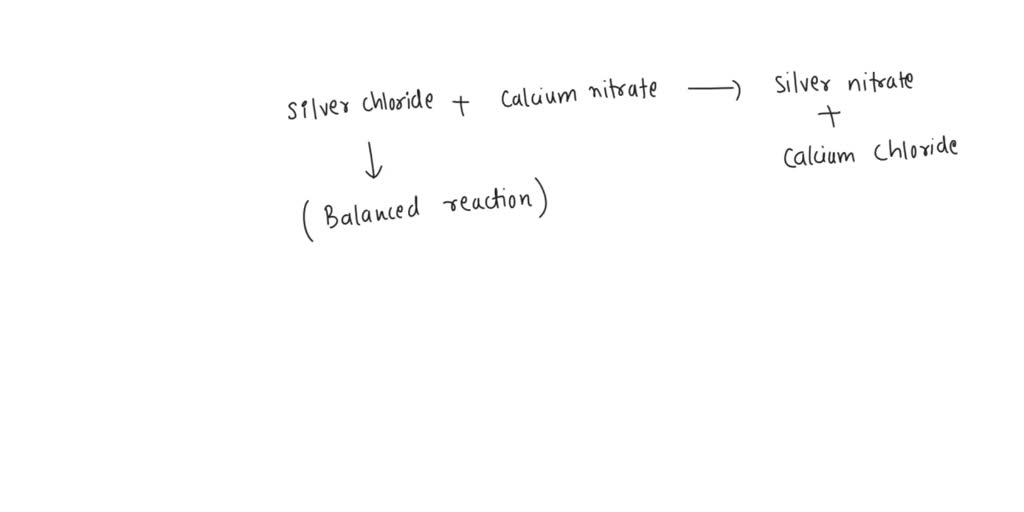 silver chloride + Calcium nitrate → silver nitrate
+
Calcium chloride
↓
(Balanced reaction)